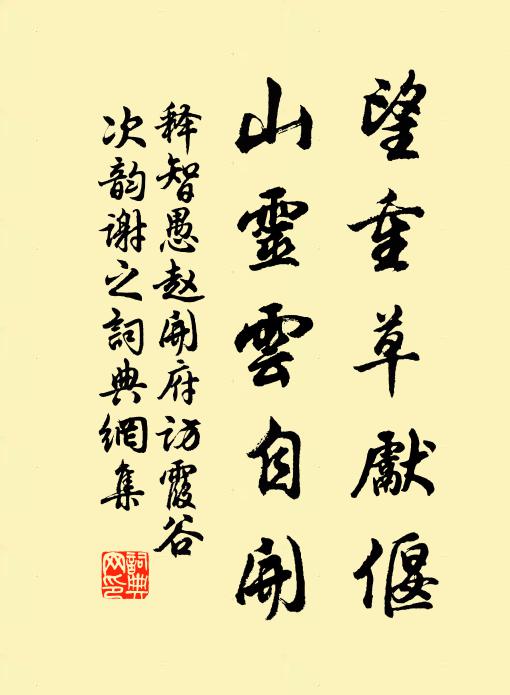 望重草獻偃
山靈雲自開
释智愚赵開府访霞谷
次韵谢之詞典網集
詞典
网印